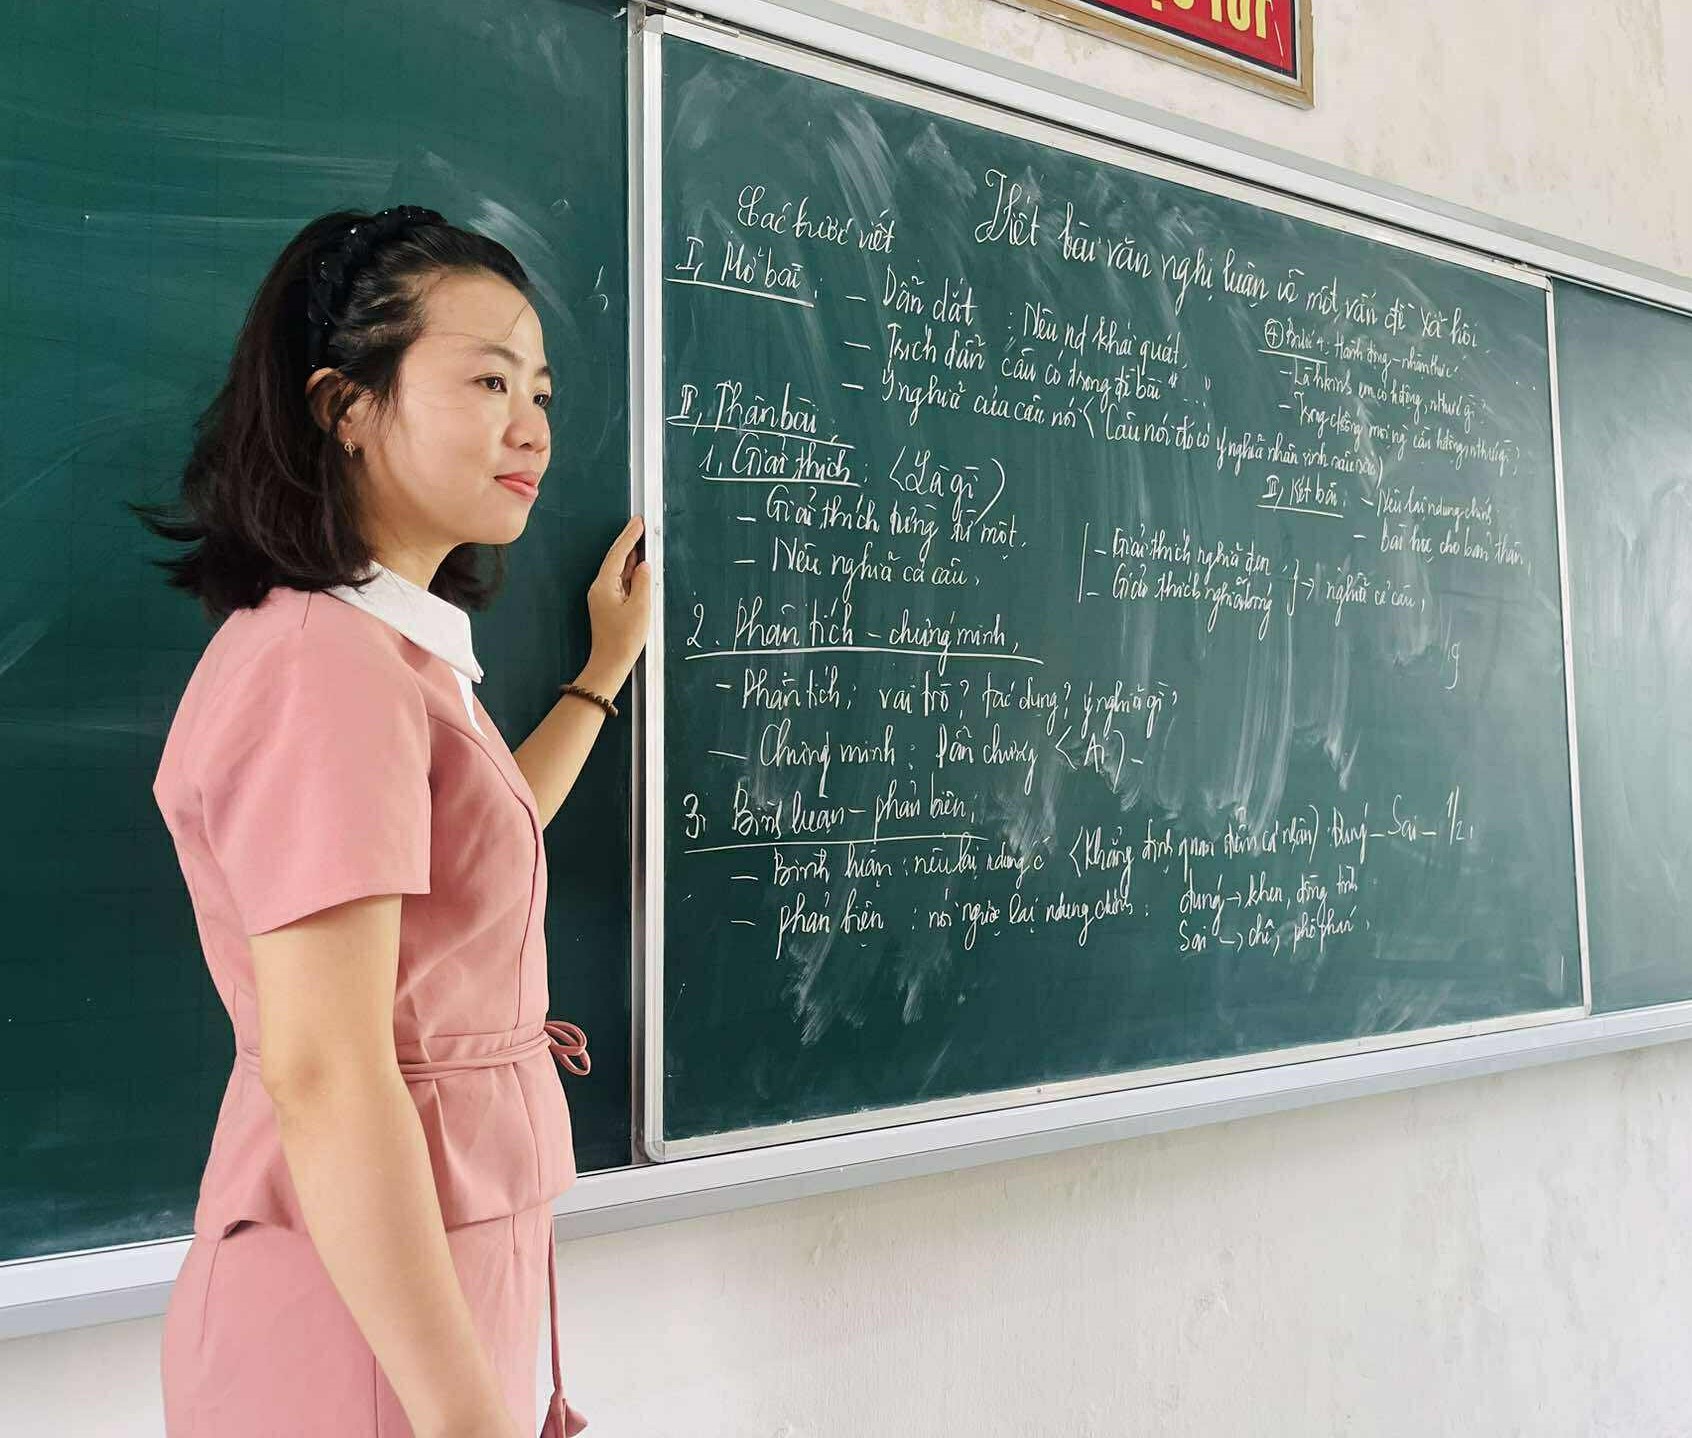 Viết bài văn nghị luận về một vấn đề xã hội.
Các bước viết
I, Mở bài:
– Dẫn dắt : Nêu nd khái quát.
– Trích dẫn câu có trong đề bài " "
– Ý nghĩa của câu nói (Câu nói đó có ý nghĩa nhân sinh sâu sắc)
II, Thân bài:
1, Giải thích: (Là gì)
– Giải thích từng từ một.
– Nêu nghĩa cả câu.
– Giải thích nghĩa đen
– Giải thích nghĩa bóng } → nghĩa cả câu.
2. Phân tích – chứng minh.
– Phân tích: vai trò? tác dụng? ý nghĩa gì?
– Chứng minh: Dẫn chứng (Ai) –
3, Bình luận – phản biện:
– Bình luận: nêu lại ndung c (Khẳng định quan điểm cá nhân) Đúng – Sai – 1/2.
– phản biện : nói ngược lại ndung chính: đúng → khen, đồng tình
Sai → chê, phê phán.
④ Bước 4: Hành động – nhận thức:
– Là h sinh em có h động, nthức gì?
– Trong cđồng mọi ng cần hđộng nthức gì?
III, Kết bài: – Nêu lại ndung chính
– bài học cho bản thân.